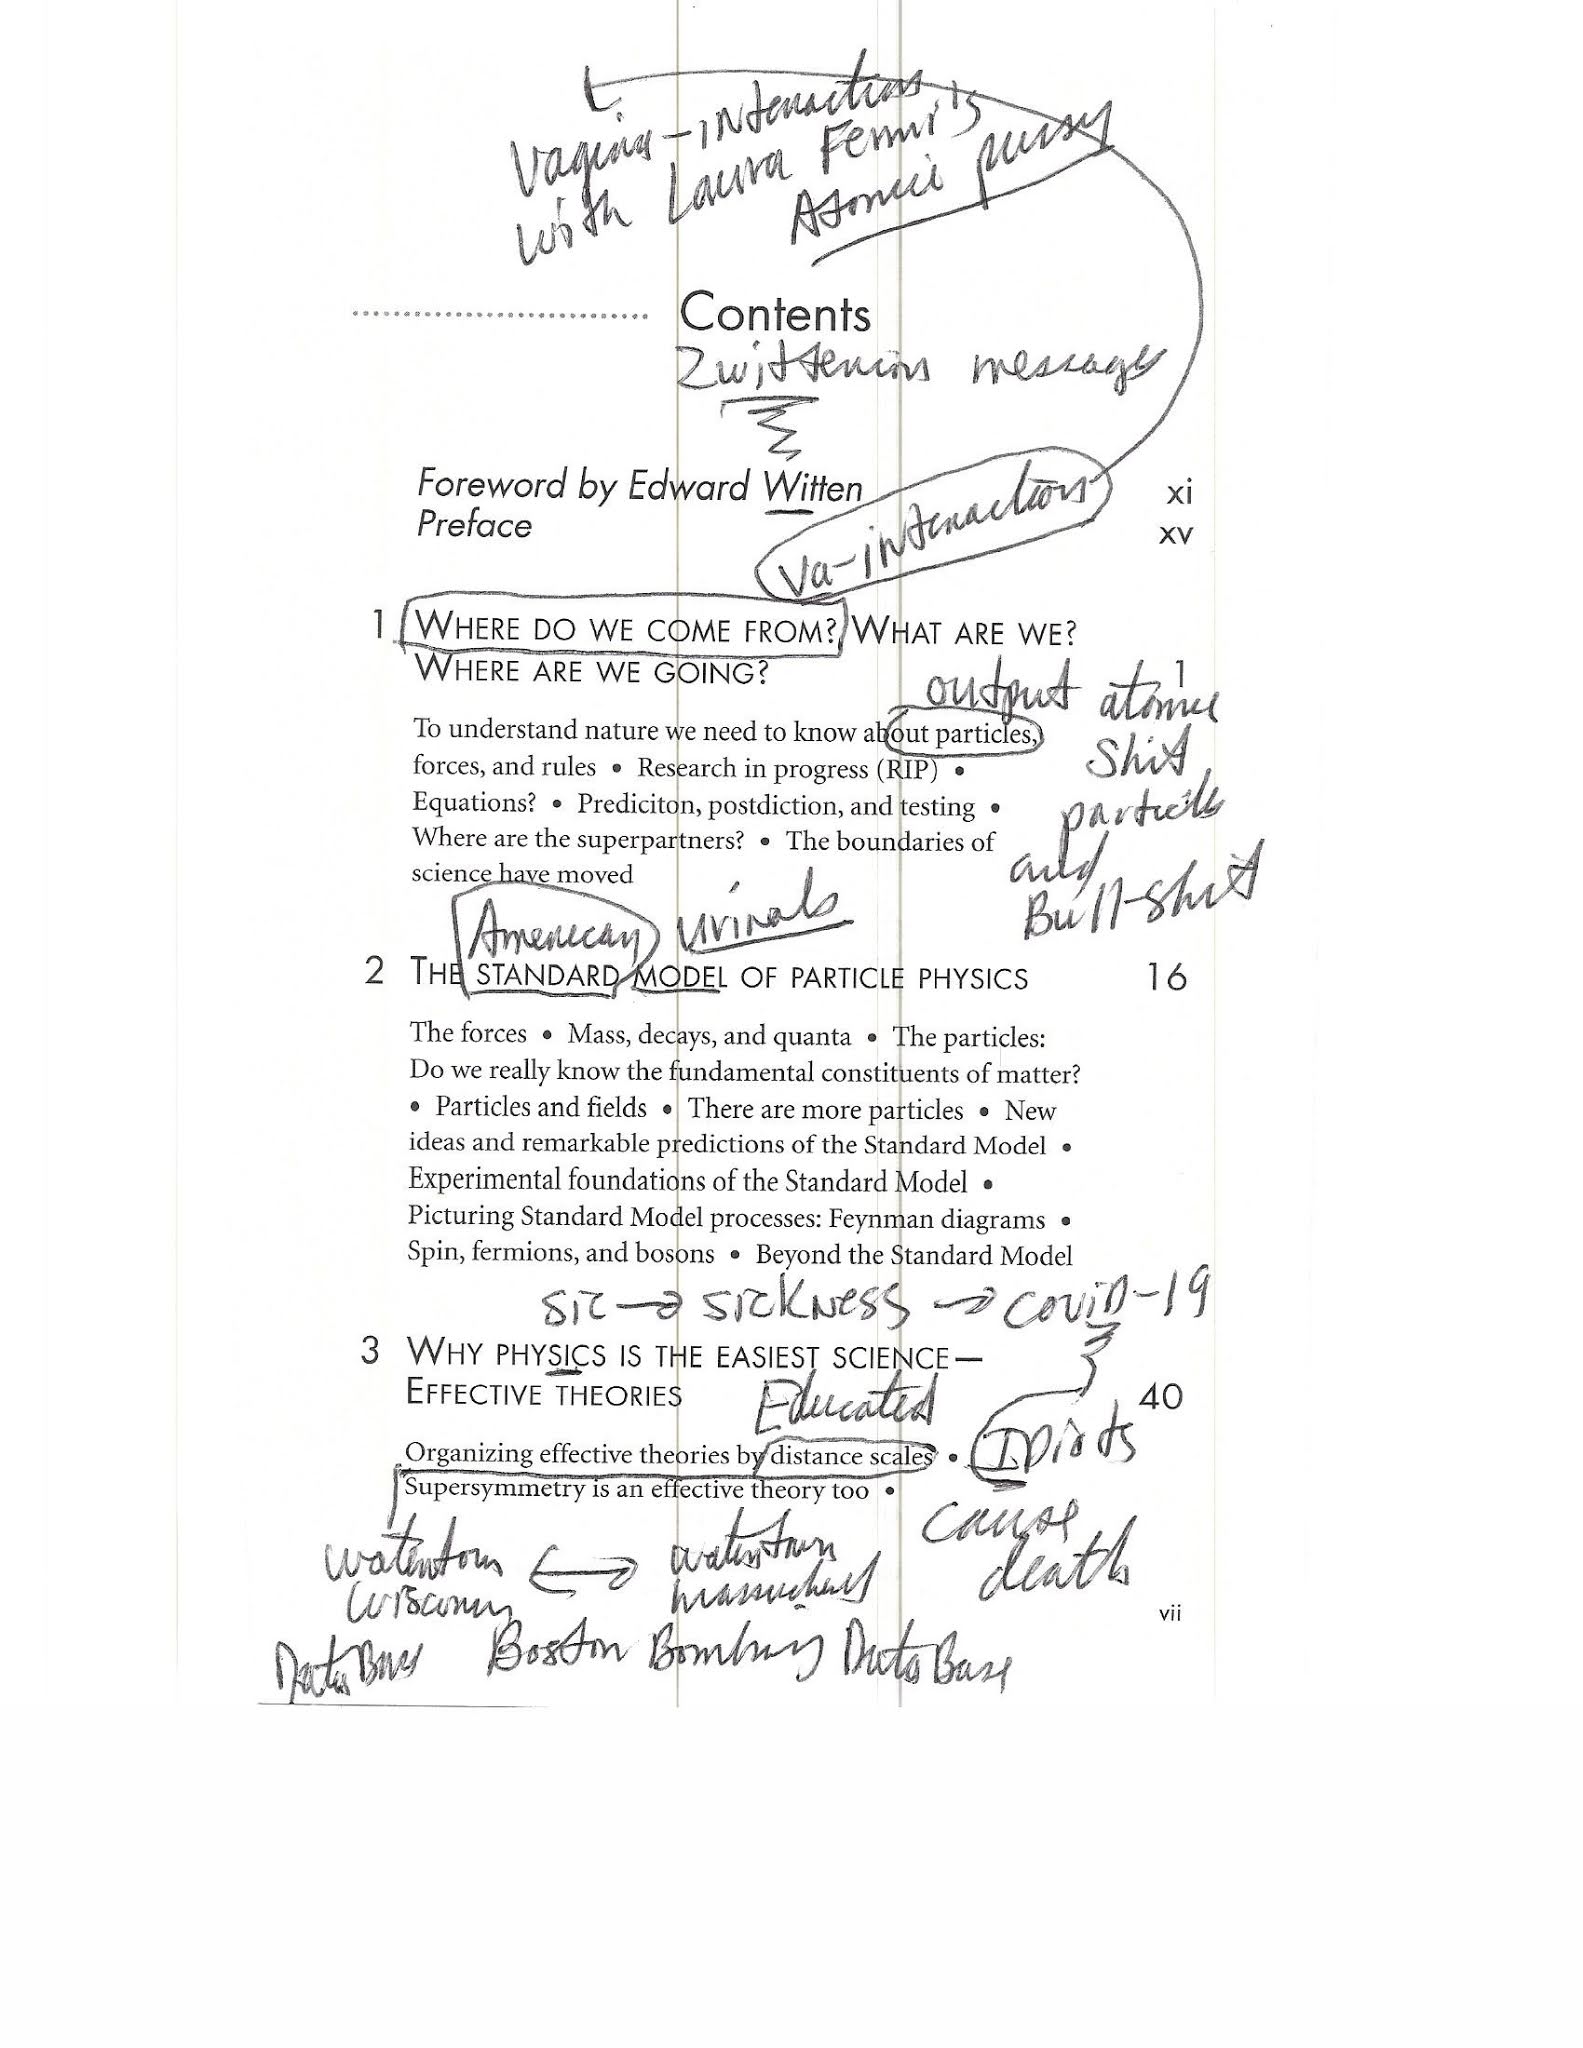 Vagina-interactions
with Laura Fermi's
Atomic pussy
Contents
Zwittenions messages
Foreword by Edward Witten xi
Preface xv
va-interactions
1 WHERE DO WE COME FROM? WHAT ARE WE?
WHERE ARE WE GOING? 1
output atomic
To understand nature we need to know about particles,
shit
forces, and rules • Research in progress (RIP) •
Equations? • Prediciton, postdiction, and testing •
particle
Where are the superpartners? • The boundaries of
science have moved
and
Bull-shit
American urinals
2 THE STANDARD MODEL OF PARTICLE PHYSICS 16
The forces • Mass, decays, and quanta • The particles:
Do we really know the fundamental constituents of matter?
• Particles and fields • There are more particles • New
ideas and remarkable predictions of the Standard Model •
Experimental foundations of the Standard Model •
Picturing Standard Model processes: Feynman diagrams •
Spin, fermions, and bosons • Beyond the Standard Model
sic → sickness → covid-19
3 WHY PHYSICS IS THE EASIEST SCIENCE—
EFFECTIVE THEORIES 40
Educated
Idiots
Organizing effective theories by distance scales •
Supersymmetry is an effective theory too •
cause
death
watertown watertown
wisconsin massachusetts
vii
Data Base Boston Bombing Data Base